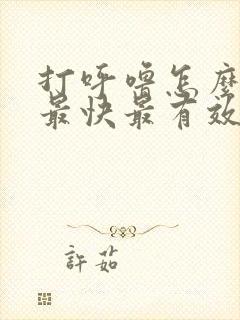 打呼噜怎麼
最快最有效
許茹